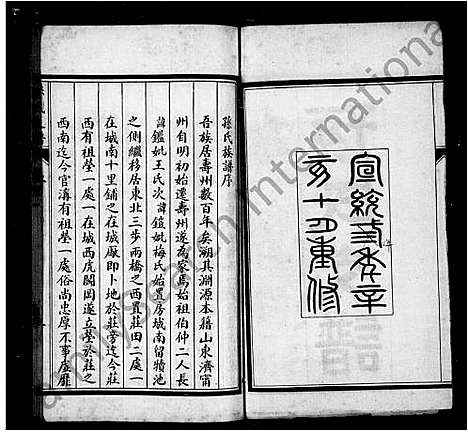 宣統弍年辛
亥十月重修
孫氏族譜序
吾族居壽州數百年矣溯其淵源本籍山東濟甯
州自明初始遷壽州遂為家焉始祖伯仲二人長
諱鑑妣王氏次諱鎧妣梅氏始置房城南留犢池
之側繼移居東北三步兩橋之西置莊田二處一
在城南十里鋪之在城廠即卜地於莊旁迄今莊
西南迄今官溝有祖塋一處俗尚忠厚不事虛靡
西有祖塋一處一在城西虎關岡遂立塋於莊之